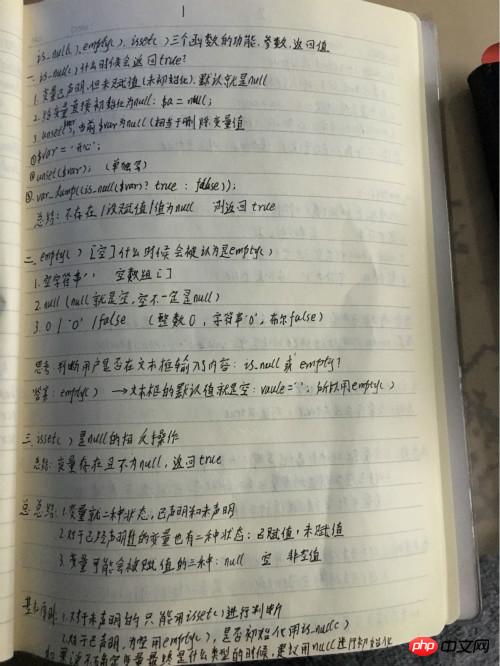 1
is_null(), empty(), isset() 三个函数的功能,参数,返回值
一. is_null() 什么时候会返回true?
1. 变量已声明,但未赋值(未初始化),默认就是null
2. 给变量直接初始化为null: $a = null;
3. unset(), 当前$var为null (相当于删除变量值
① $var = '开心';
② unset($var); (单独写)
③. var_dump(is_null($var)? true : false));
总结: 不存在 | 没赋值 | 值为null 则返回true
二. empty() [空] 什么时候会被认为是empty()
1. 空字符串'' 空数组[]
2. null (null就是空,空不一定是null)
3. 0 | '0' | false (整数0, 字符串'0', 布尔false)
思考: 判断用户是否在文本框输入了内容: is_null 或 empty?
答案: empty() → 文本框的默认值就是空: vaule=''; 所以用empty()
三. isset() 是null的相反操作
总结: 变量存在且不为null, 返回true
总总结: 1. 变量就二种状态, 已声明和未声明
2. 对于已经声明的变量也有二种状态: 已赋值, 未赋值
3. 变量可能会被赋值的三种: null 空 非空值
基本原则: 1. 对于未声明的只能用isset()进行判断
2. 对于已声明, 为空用empty(), 是否初始化用is_null()
如果还不确定变量是什么类型的时候, 建议用null进行初始化
php 中文网